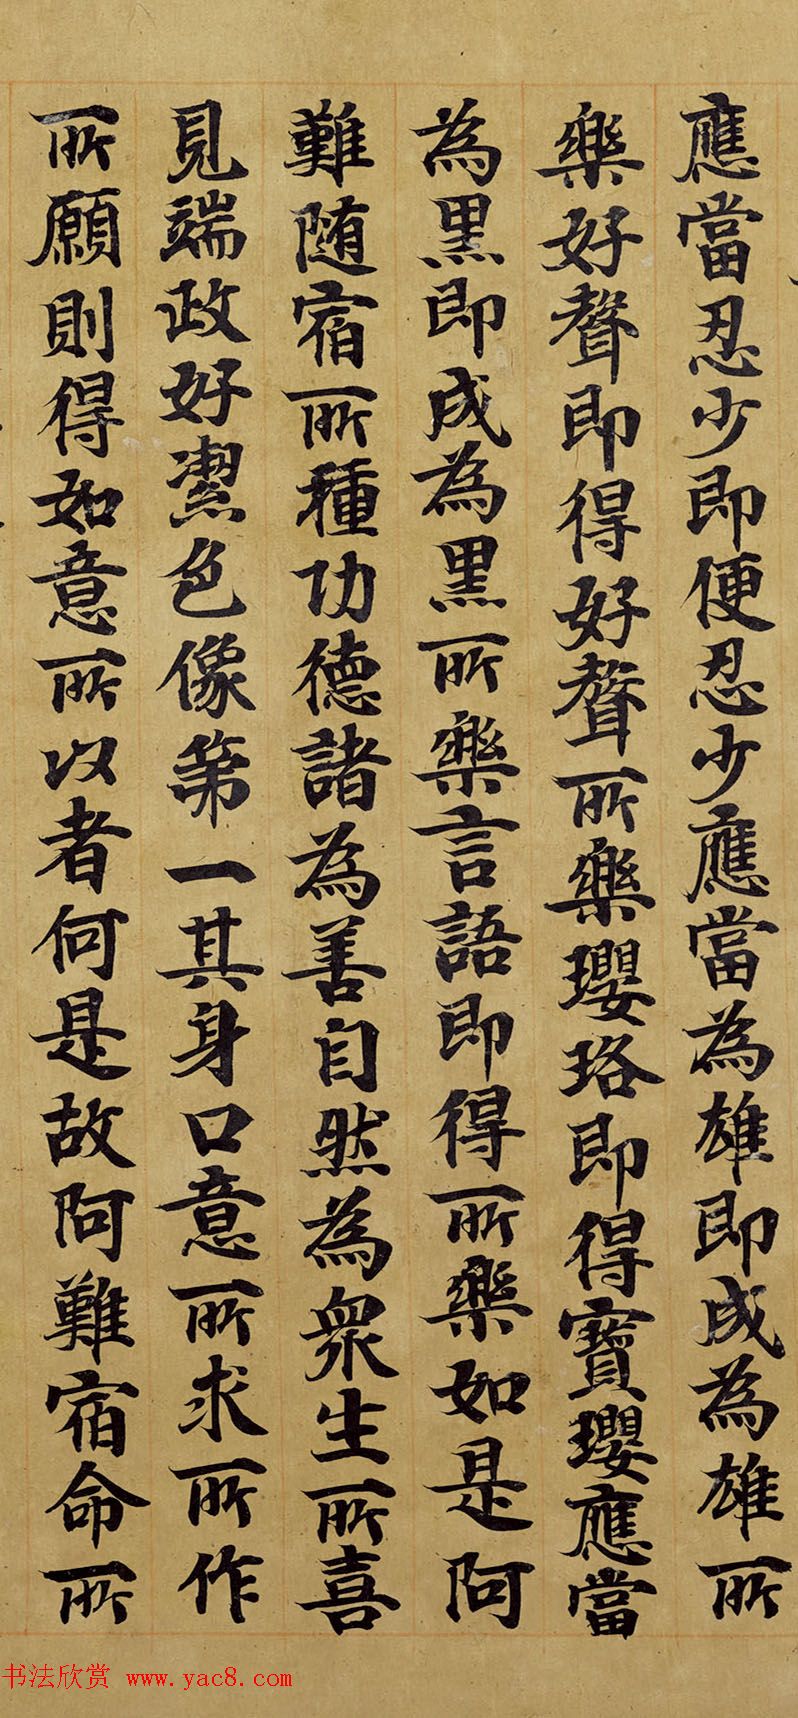 應當忍少即便忍少應當為雄即成為雄所
樂好聲即得好聲所樂瓔珞即得寶瓔應當
為黑即成為黑所樂言語即得所樂如是阿
難随宿所種功德諸為善自然為衆生所喜
見端政好潔色像第一其身口意所求所作
所願則得如意所以者何是故阿難宿命所
书法欣赏 www.yac8.com